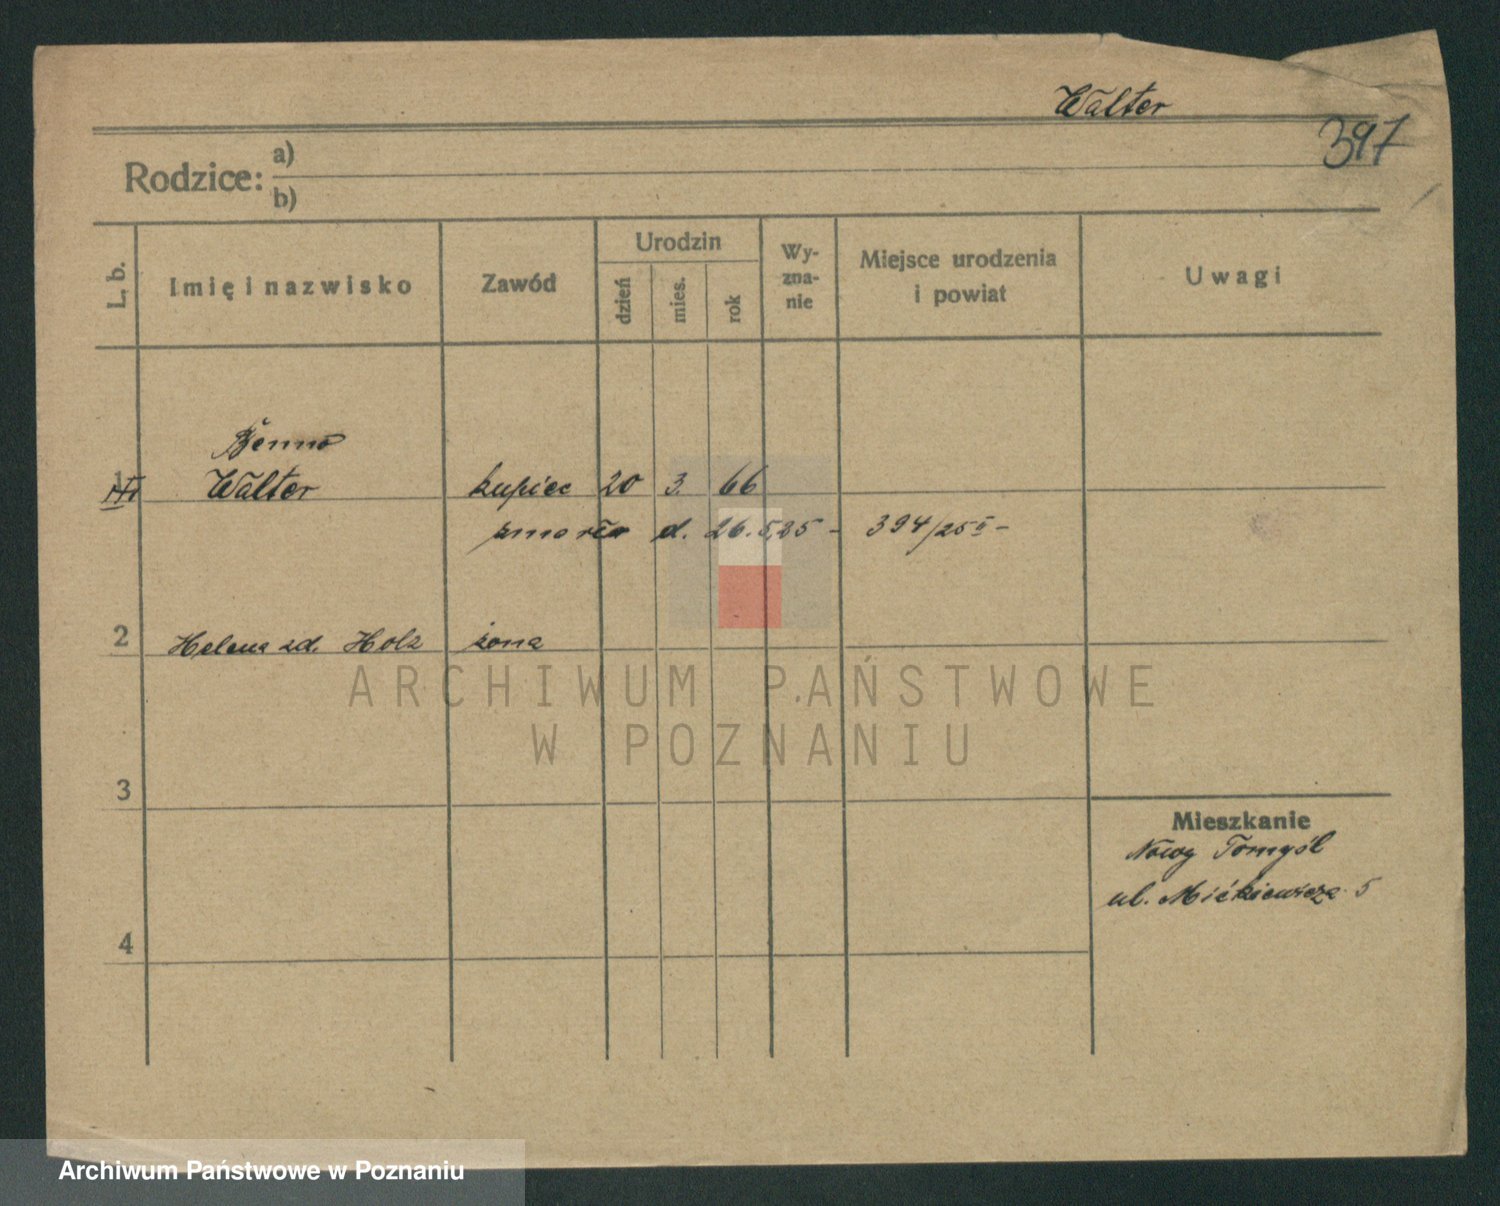 Walter
397
Rodzice: a)
b)
L. b.
Imię i nazwisko
Zawód
Urodzin
dzień
mies.
rok
Wy-
zna-
nie
Miejsce urodzenia
i powiat
Uwagi
Benno
1 Walter kupiec 20 3. 66
zmarła d. 26.5.25 - 394/25 II -
2 Helena zd. Holz żona
3
4
Mieszkanie
Nowy Tomyśl
ul. Mickiewicza 5
ARCHIWUM PAŃSTWOWE
W POZNANIU
Archiwum Państwowe w Poznaniu